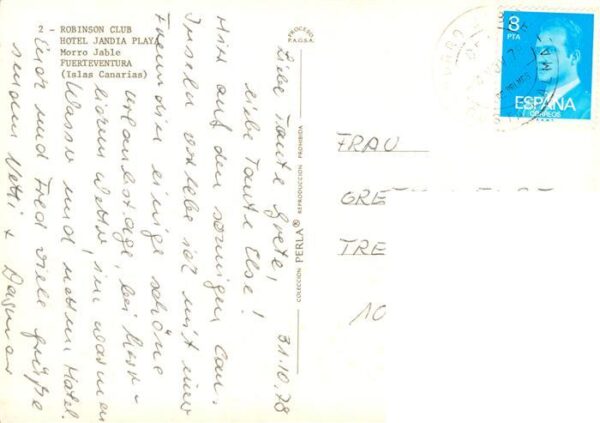 2 - ROBINSON CLUB
HOTEL JANDIA PLAYA
Morro Jable
FUERTEVENTURA
(Islas Canarias)
PROCESO
P.A.G.S.A.
31.10.78
Liebe Tante Grete,
liebe Tante Else!
Hier auf den sonnigen Can.
Inseln verlebe ich mit einer
Freundin einige schöne
Urlaubstage, bei herr-
lichem Wetter, im warmen
Wasser und nettem Hotel.
Euch und Fred viele Grüße
senden Netti + Dagmar
COLECCION PERLA® REPRODUCCION PROHIBIDA
8
PTA
ESPAÑA
CORREOS
FRAU
GRE
TRE
10